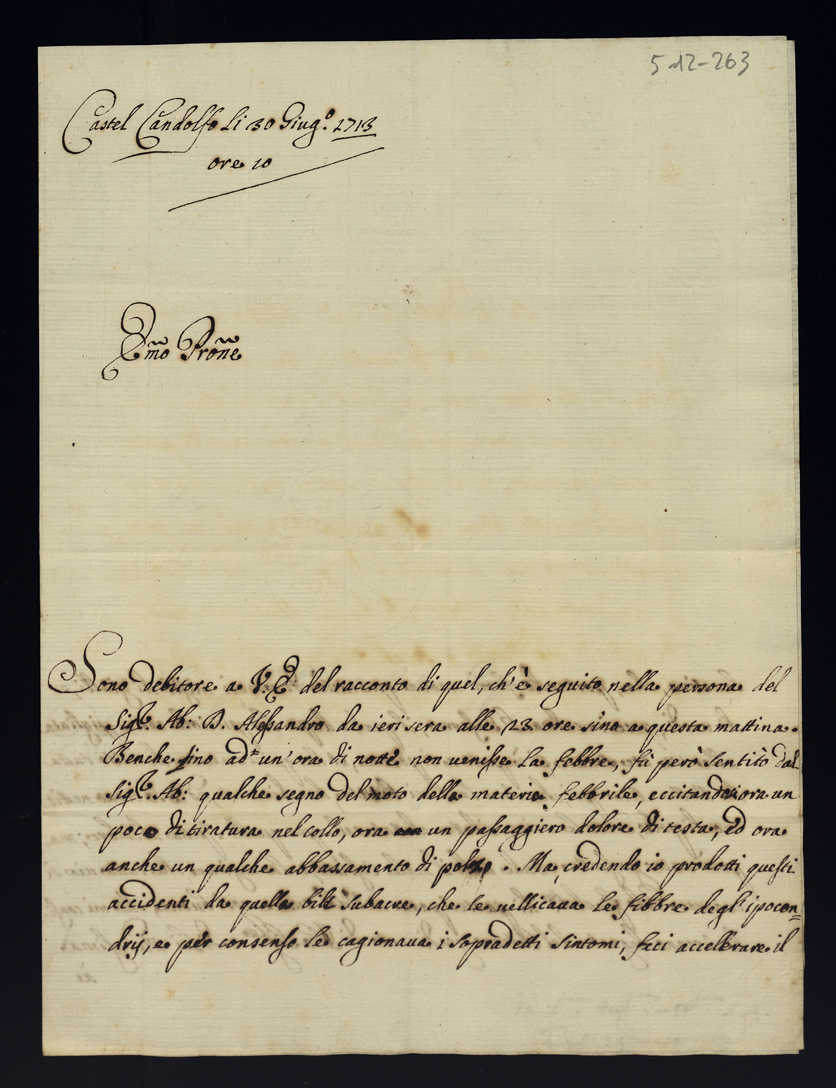 5-12-263
Castel Gandolfo li 30 Giug.º 1713
ore 10
Em̃o Prõne
Sono debitore a V. E. del racconto di quel, ch'è seguito nella persona del
Sig.r Ab: D. Alessandro da ieri sera alle 23 ore sino a questa mattina.
Benche sino ad un'ora di notte non venisse la febbre, fù però sentito dal
Sig.r Ab: qualche segno del moto della materia febbrile, eccitandosi ora un
poco di tiratura nel collo, ora un passaggiero dolore di testa, ed ora
anche un qualche abbassamento di polso. Ma credendo io prodotti questi
accidenti da quella bile subacre, che le vellicava le fibbre degl'ipocon=
drij, e per consenso le cagionava i sopradetti sintomi, feci accellerare il